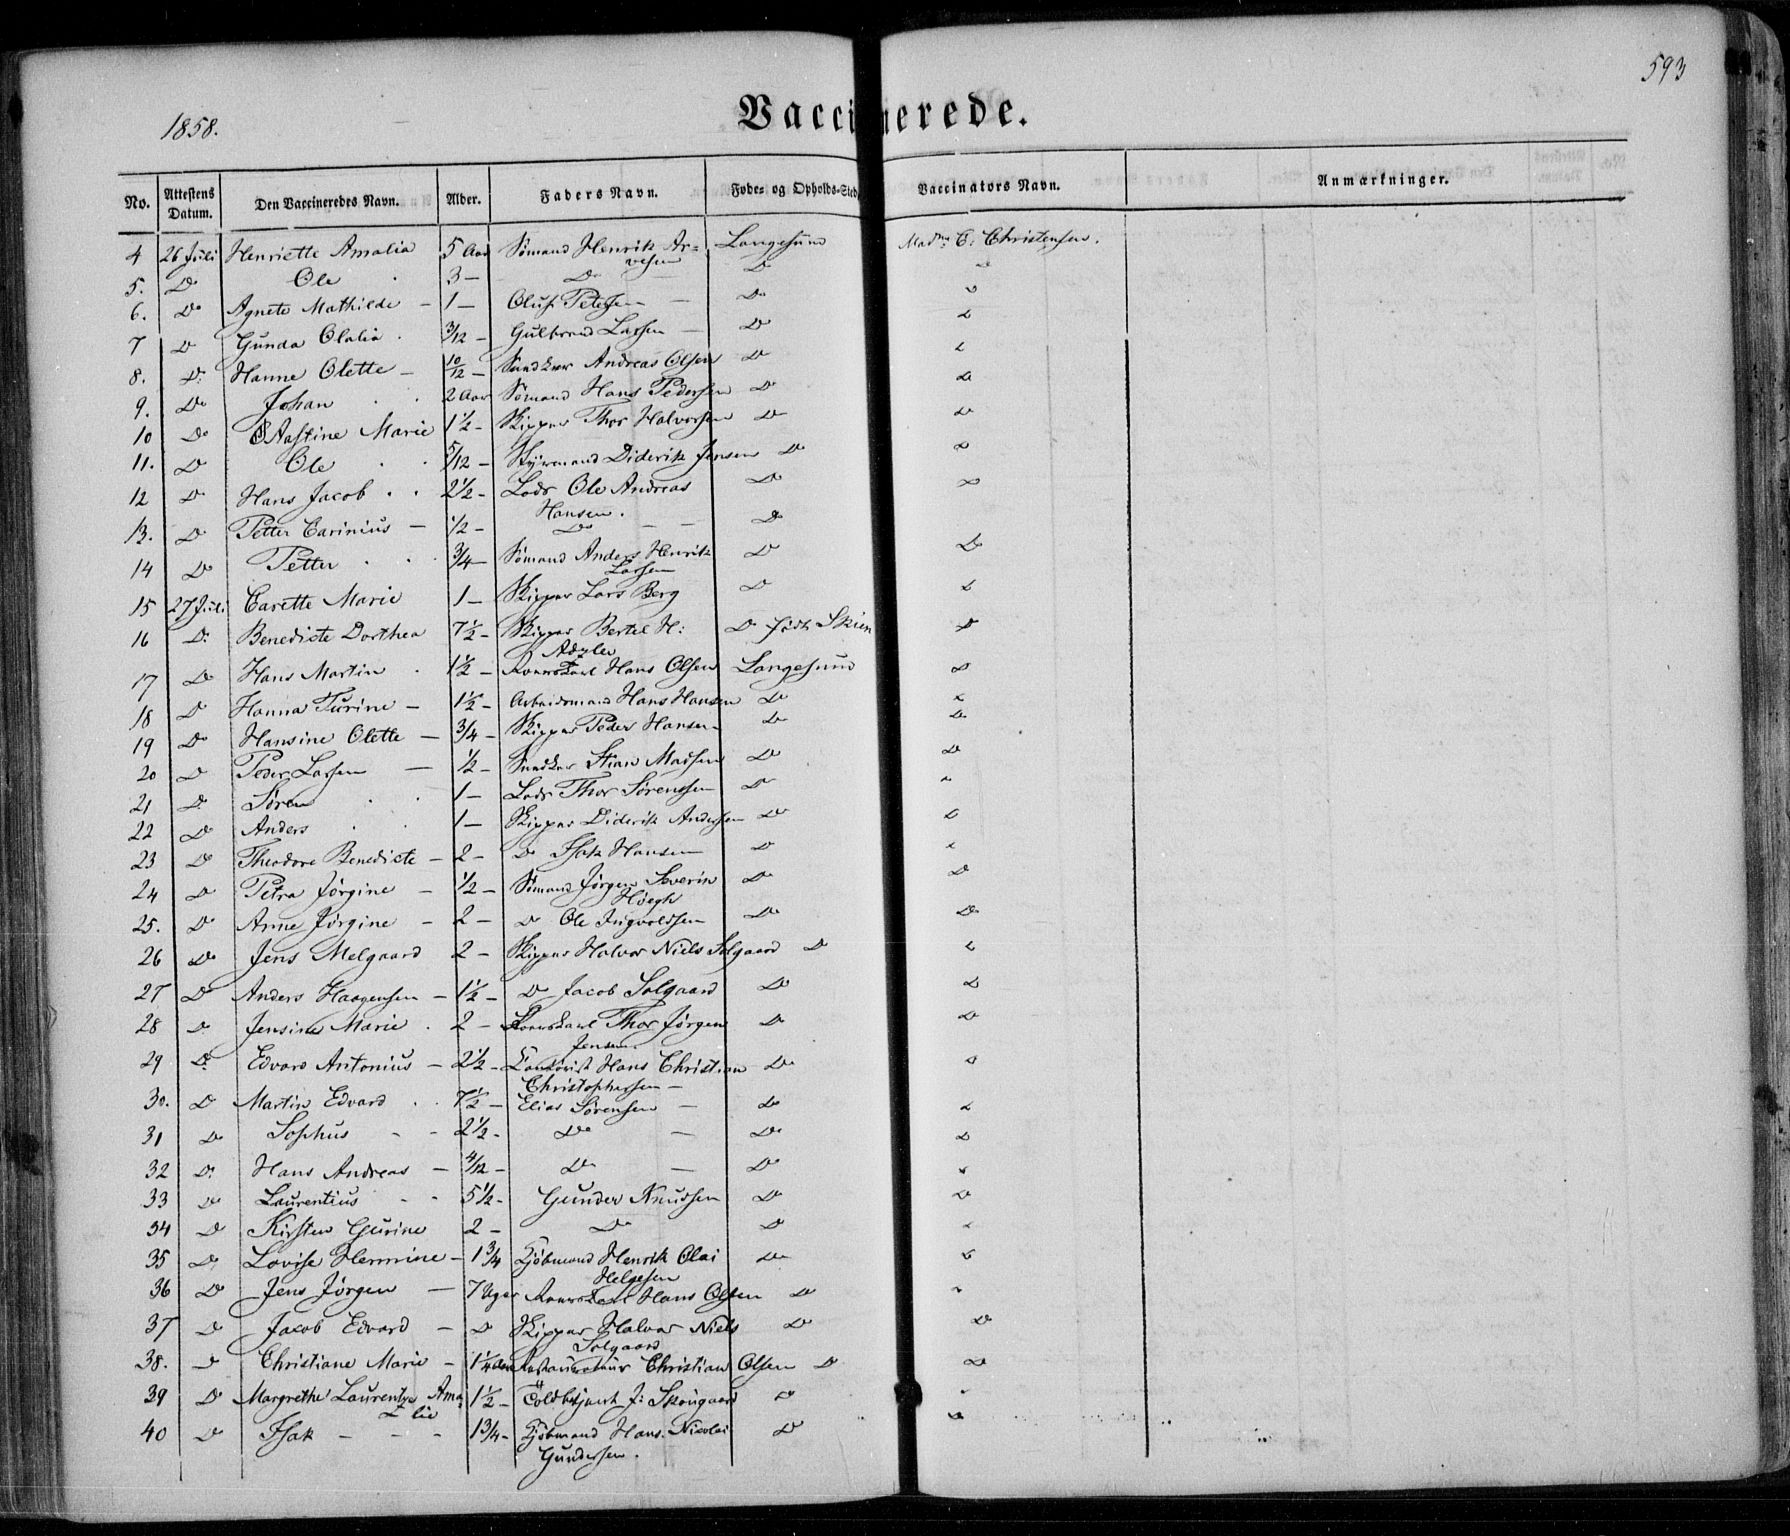 593
1858.
Vaccinerede.
No. Attestens Datum. Den Vaccineredes Navn. Alder. Faders Navn. Føde- og Opholds-Sted Vaccinators Navn. Anmærkninger.
4 26 Juli Henriette Amalia 5 Aar Sømand Henrik Ar- Langesund Mad. C. Christensen.
vesen
5. Do Ole 3 — Do Do Do
6. Do Agnete Mathilde — 1 — Oluf Petersen — Do Do
7 Do Gunda Olalia . 3/12 — Gulbrand Larsen — Do Do
8. Do Hanne Olette — 10/12 — Andreas Olsen Do Do
9. Do Johan . . 2 Aar Sømand Hans Pedersen Do Do
10 Do Aastine Marie 1 1/2 — Skipper Thor Halvorsen Do Do
11. Do Ole . . 5/12 — Styrmand Diderik Jensen Do Do
12 Do Hans Jacob . . 2 1/2 — Lods Ole Andreas Do Do
Hansen.
13. Do Petter Carinius — 1/2 — Do — — Do
14 Do Petter . . 3/4 — Sømand Anders Henrik Do Do
Larsen
15 27 Juli Carette Marie 1 — Skipper Lars Berg Do Do
16 Do Benedicte Dorthea 7 1/2 — Skipper Bertel H: Do født Skien Do
17 Do Hans Martin . 1 1/2 — Hans Olsen Langesund Do
18 Do Hanna Turine — 1 1/2 — Arbeidsmand Hans Hansen Do Do
19 Do Hansine Olette — 3/4 — Skipper Peder Hansen Do Do
20 Do Peder Larsen — 1/2 — Stian Madsen Do Do
21 Do Søren . . 1 — Lods Thor Sørenssen Do Do
22 Do Anders . . 1 — Skipper Diderik Andersen Do Do
23 Do Theodore Benedicte — 2 — Do Isak Hansen Do Do
24 Do Petra Jørgine — 1/2 — Sømand Jørgen Severin Do Do
Høegh
25. Do Anne Jørgine — 2 — Do Ole Ingvoldsen Do Do
26 Do Jens Melgaard 2 — Skipper Halvor Niels Solgaard Do Do
27 Do Anders Haagensen — 1 1/2 — Do Jacob Solgaard Do Do
28 Do Jensine Marie . 2 — Thor Jørgen Do Do
Jensen.
29 Do Edvard Antonius — 2 1/2 — Hans Christian Do Do
Christophersen —
30. Do Martin Edvard . . 7 1/2 — Elias Sørensen — Do Do
31 Do Sophus — — 2 1/2 — Do — Do Do
32 Do Hans Andreas — 4/12 — Do — Do Do
33 Do Laurentius — — 5 1/2 — Gunder Knudsen Do Do
34 Do Kirsten Gurine 2 — Do Do Do
35 Do Lovise Hermine — 1 3/4 Kjøbmand Henrik Olai Do Do
Helgesen
36 Do Jens Jørgen — 7 Uger Hans Olsen Do Do
37 Do Jacob Edvard — Do Skipper Halvor Niels Do Do
Solgaard
38. Do Christiane Marie — 1 1/4 Aar Restaurateur Christian Olsen Do Do
39 Do Margrethe Laurentze Ama- 1 1/2 — J: Skougaard Do Do
lie
40 Do Isak — — — 1 3/4 — Kjøbmand Hans Nicolai Do Do
Gundersen.